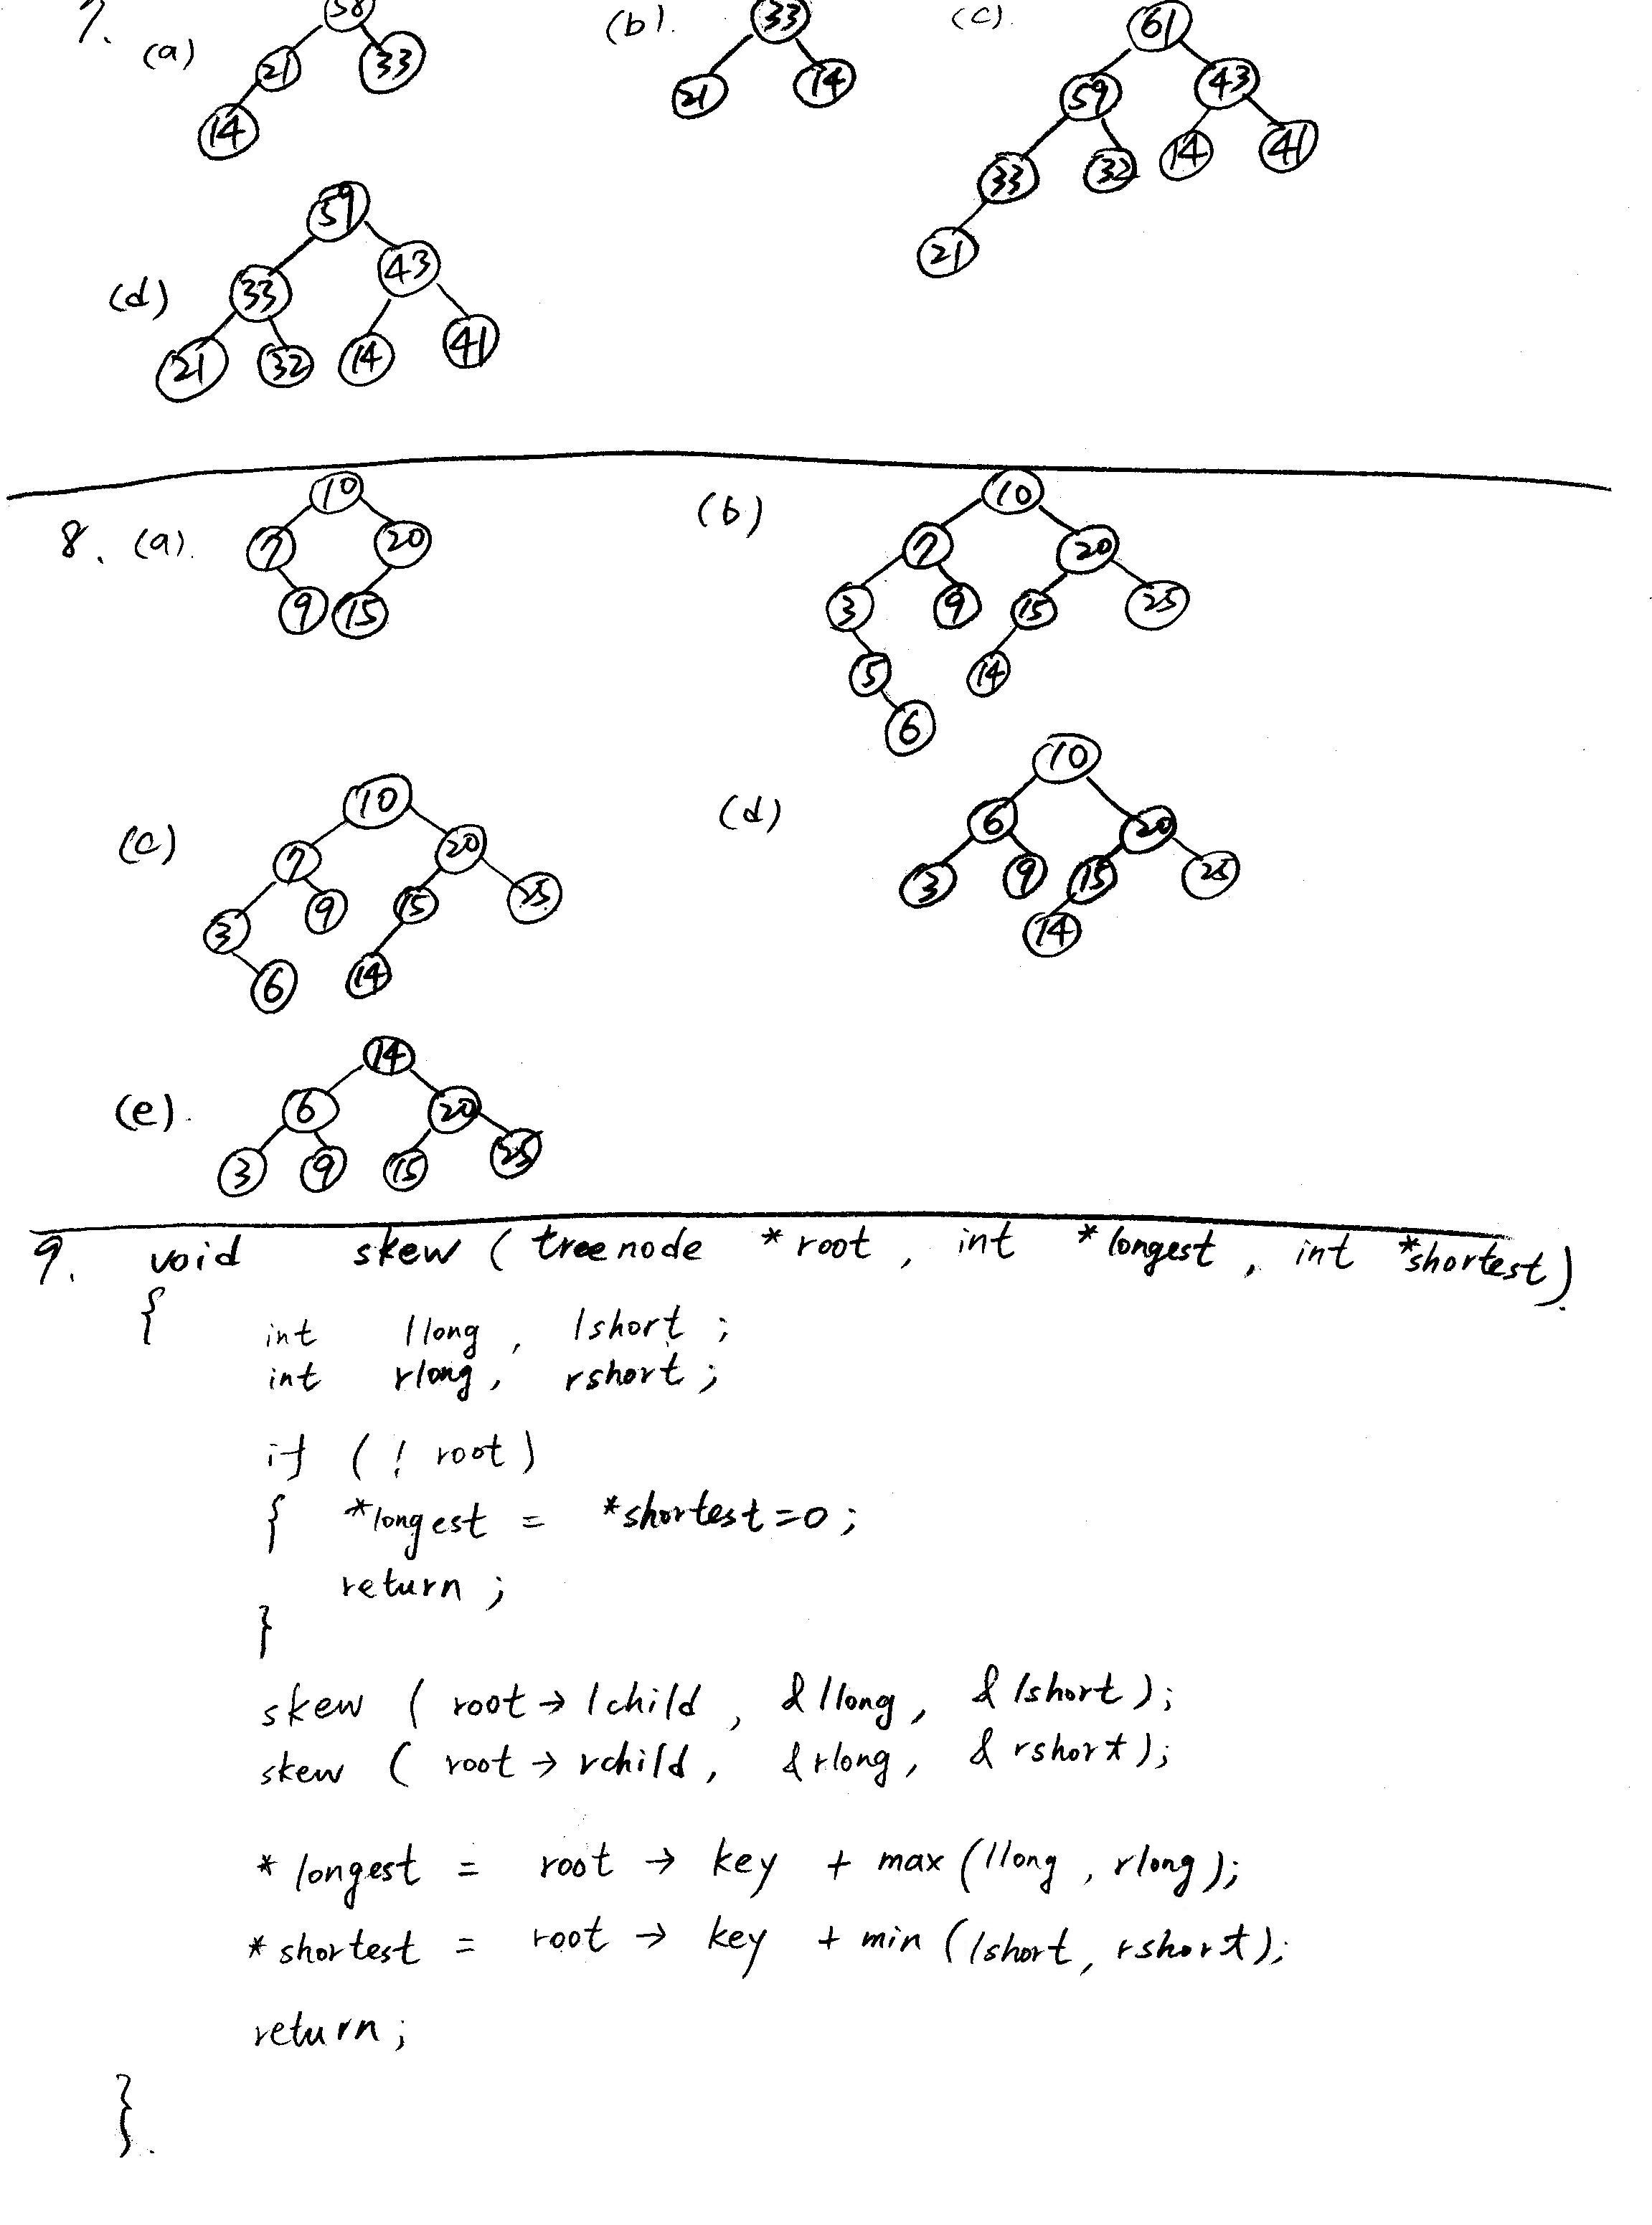 7. (a) 58 (b). 33 (c). 61
21 33 21 14 59 43
14 33 32 14 41
21
(d) 59
33 43
21 32 14 41
8. (a). 10 (b) 10
7 20 7 20
9 15 3 9 15 25
5 14
6
(c) 10 (d) 10
7 20 6 20
3 9 15 25 3 9 15 25
6 14 14
(e). 14
6 20
3 9 15 25
9. void skew (treenode *root, int *longest, int *shortest)
{
int llong, lshort;
int rlong, rshort;
if (! root)
{ *longest = *shortest=0;
return;
}
skew ( root→lchild, &llong, &lshort);
skew ( root→rchild, &rlong, &rshort);
*longest = root → key + max(llong, rlong);
*shortest = root → key + min(lshort, rshort);
return;
}.